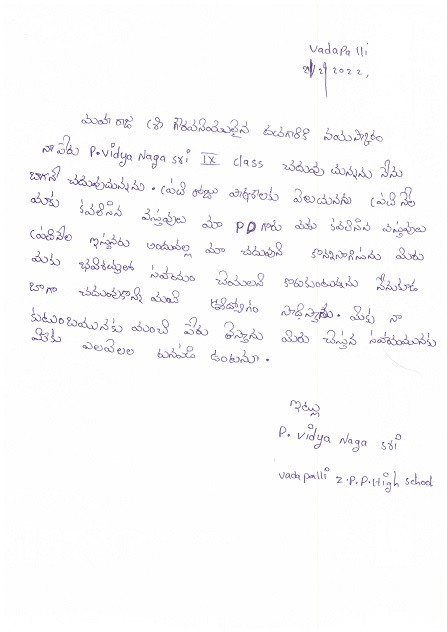 Vadapalli
2/2/2022,
మహారాజ శ్రీ గౌరవనీయులైన దయగారికి నమస్కారం
నా పేరు P. Vidya Naga sri IX class చదువు చున్నాను నేను
బాగానే చదువుచున్నాను. ప్రతి రోజు పాఠశాలకు వెలుచునాను ప్రతి నెల
మాకు కవలిసిన వస్తువులు మా PD గారు మాకు కవలిసిన వస్తువులు
ప్రతినెల ఇస్తునరు అందువల్ల మా చదువుని కొనసాగిసును మీరు
మాకు భవిశత్తులో సహయం చేయలని కోరుకుంటున్నను నేనుకూడ
బాగా చదువుకొని మంచి ఉద్యోగం సాధిస్తాను. మీకు నా
కుటుంబమునకు మంచి పేరు తెస్తాను మీరు చేస్తున సహయమునకు
మీకు ఎలవేలల రునపడి ఉంటును.
ఇట్లు
P. Vidya Naga sri
Vadapalli Z.P.P. High school